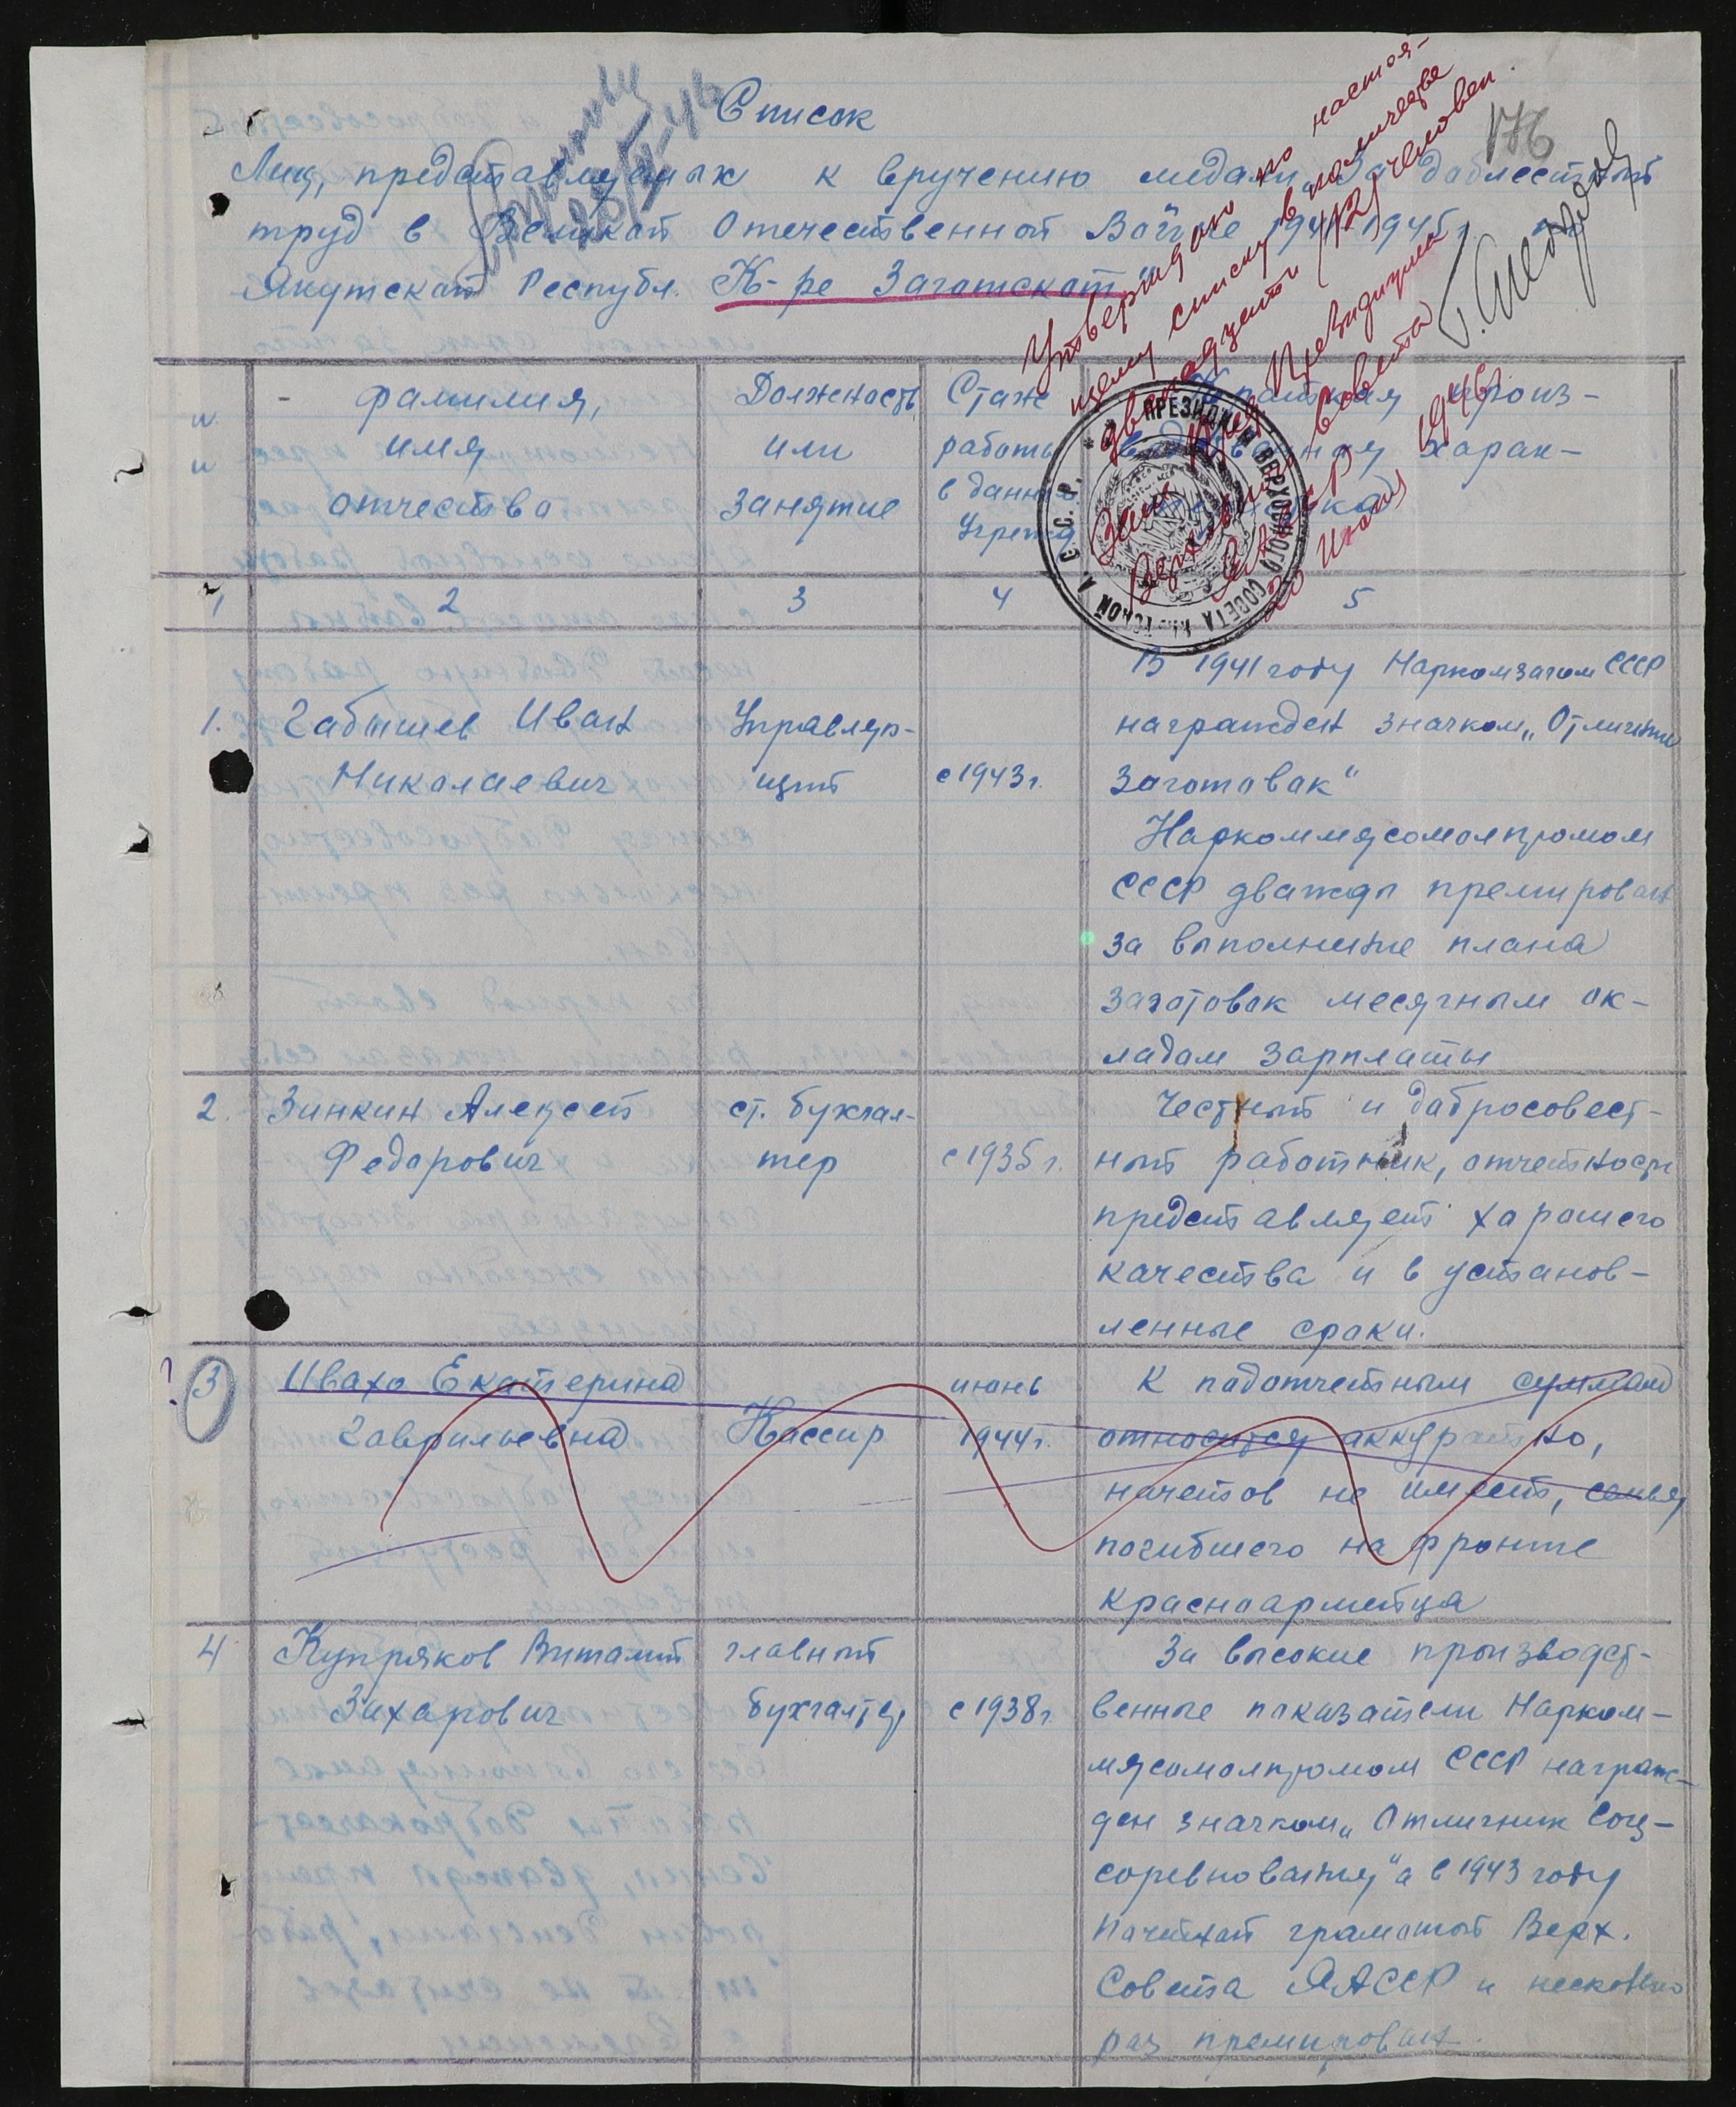 176
Список
Лиц, представляемых к вручению медали „За доблестный
труд в Великой Отечественной Войне 1941-1945 г. по
Якутской Республ. К-ре Заготскот"
Утверждаю по настоя-
щему списку в количестве
двенадцати (12) человек
Зам. Пред. Президиума
Верховного Совета
ЯАССР
20 июня 1946 г.
ПРЕЗИДИУМ ВЕРХОВНОГО СОВЕТА ЯКУТСКОЙ А.С.С.Р.
фамилия,
имя
отчество
Должность
или
занятие
Стаж
работы
в данном
Учрежд.
Краткая произ-
водственная харак-
теристика
1 2 3 4 5
1. Габышев Иван
Николаевич
Управляю-
щий
с 1943 г.
В 1941 году Наркомзагом СССР
награжден значком „Отличник
Заготовок"
Наркоммясомолпромом
СССР дважды премирован
за выполнение плана
заготовок месячным ок-
ладом зарплаты
2. Зинкин Алексей
Федорович
ст. бухгал-
тер
с 1935 г.
Честный и добросовест-
ный работник, отчетность
представляет хорошего
качества и в установ-
ленные сроки.
3 Ивахо Екатерина
Гаврильевна
Кассир
июнь
1944 г.
К подотчетным суммам
относится аккуратно,
начетов не имеет, семья
погибшего на фронте
красноармейца
4 Купряков Виталий
Захарович
главный
бухгалтер
с 1938 г.
За высокие производст-
венные показатели Нарком-
мясомолпромом СССР награж-
ден значком „Отличник Соц-
соревнования" а в 1943 году
Почетной грамотой Верх.
Совета ЯАССР и несколько
раз премирован.